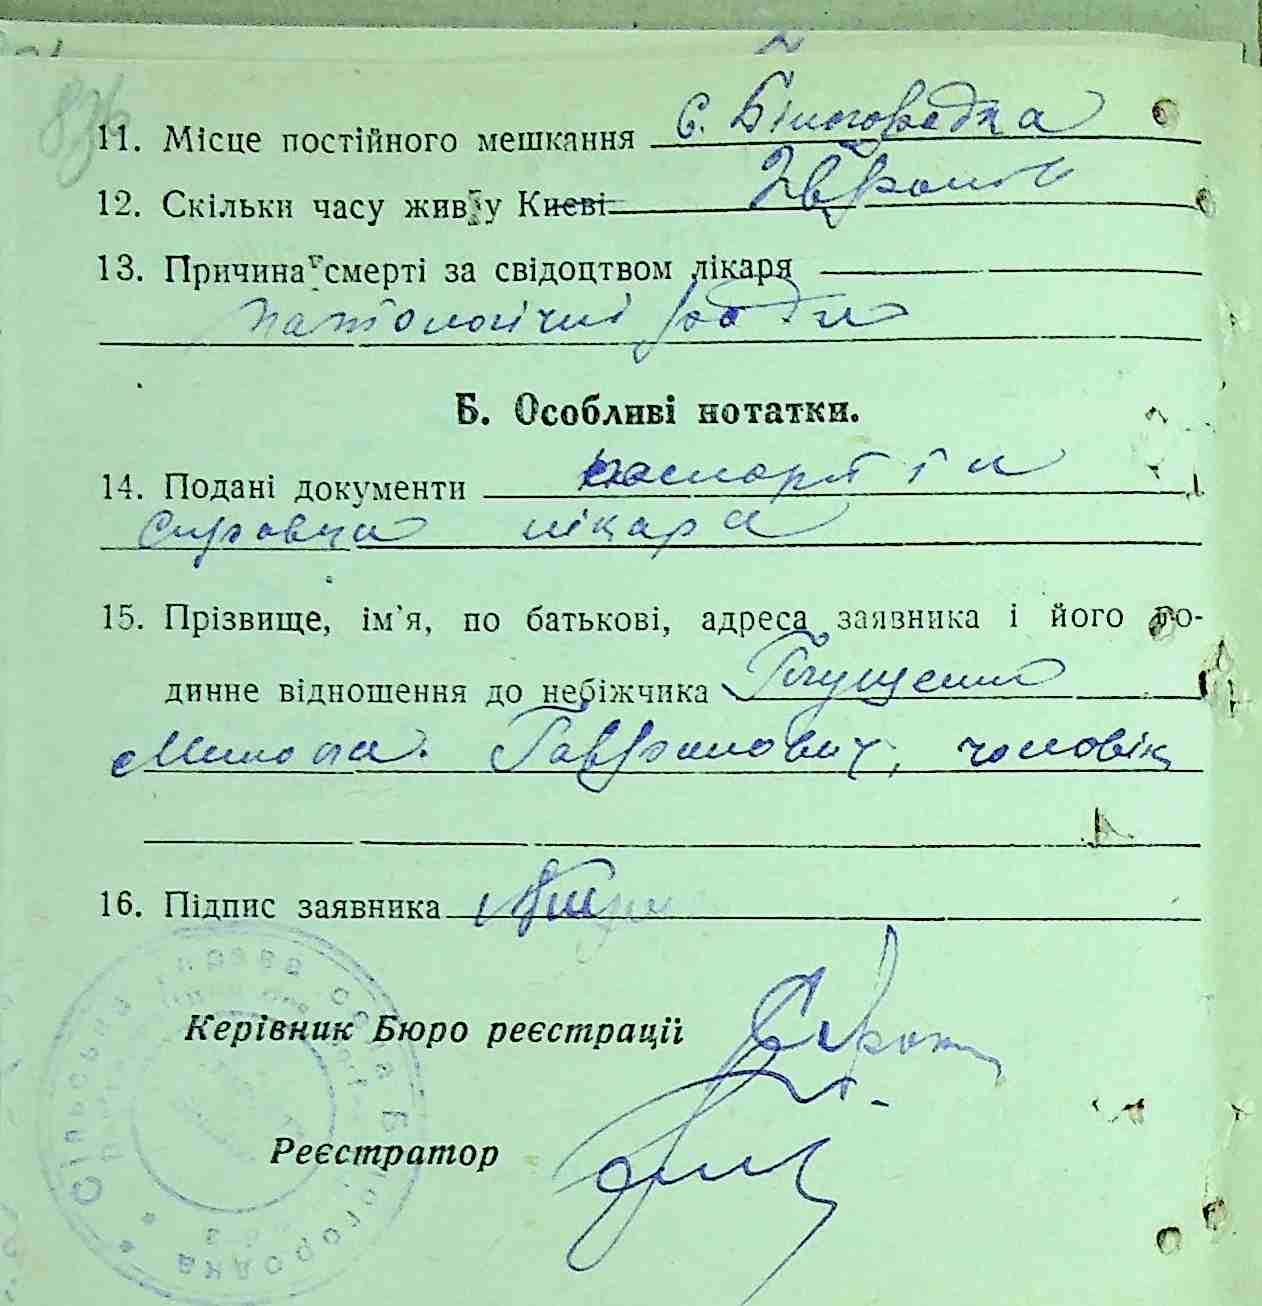 11. Місце постійного мешкання с. Білогородка
12. Скільки часу жив у Києві
13. Причина смерті за свідоцтвом лікаря
патологічні роди
Б. Особливі нотатки.
14. Подані документи паспорт і
справка лікара
15. Прізвище, ім'я, по батькові, адреса заявника і його ро-
динне відношення до небіжчика
Микола Гаврилович, чоловік
16. Підпис заявника
Керівник Бюро реєстрації
Реєстратор